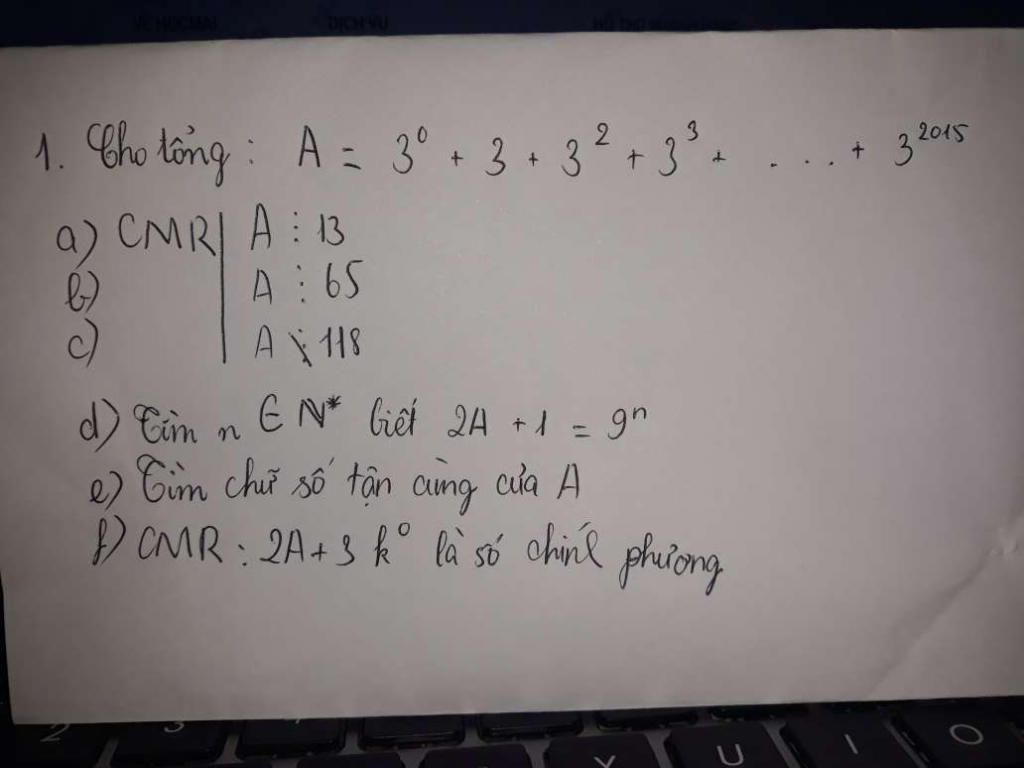 VỀ HOCMAI DỊCH VỤ
1. Cho tổng : A = 3⁰ + 3 + 3² + 3³ + . . . . + 3²⁰¹⁵
a) CMR | A ⋮ 13
b) | A ⋮ 65
c) | A ⋮̸ 118
d) Tìm n ∈ N* biết 2A + 1 = 9ⁿ
e) Tìm chữ số tận cùng của A
f) CMR : 2A + 3 k⁰ là số chính phương
2 3 Y U I O